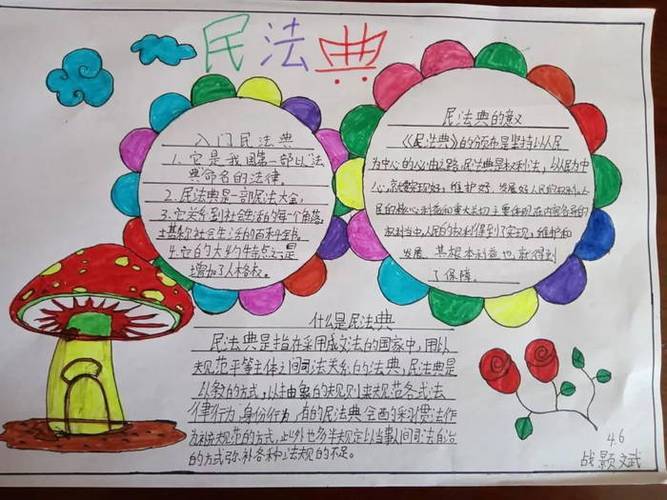 民法典
入门民法典
1.它是我国第一部以法
典命名的法律。
2.民法典是一部民法大全,
3.它关系到社会生活的每一个角落,
社会生活的百科全书。
4.它的大的特点之一是
增加了人格权。
民法典的意义
《民法典》的颁布是坚持以人民
为中心的心由之路,民法典是权利法,以人民为中
心,就要实现好,维护好,发展好人民的权利,人
民的核心利益和重大关切主要体现在内容各商的
权利当中,人民的权利得到了实现,维护和
发展,其根本利益也就得到
了保障。
什么是民法典
民法典是指在采用成文法的国家中,用以
规范平等主体之间司法关系的法典,民法典是
以教的方式,以抽象的规则来规范各式法
律行为,身份行为,有的民法典会酌采习惯法作
为补充规范的方式,此外也多半规定以当事人间司法自治
的方式弥补各种法规的不足。
4.6
战颢文武